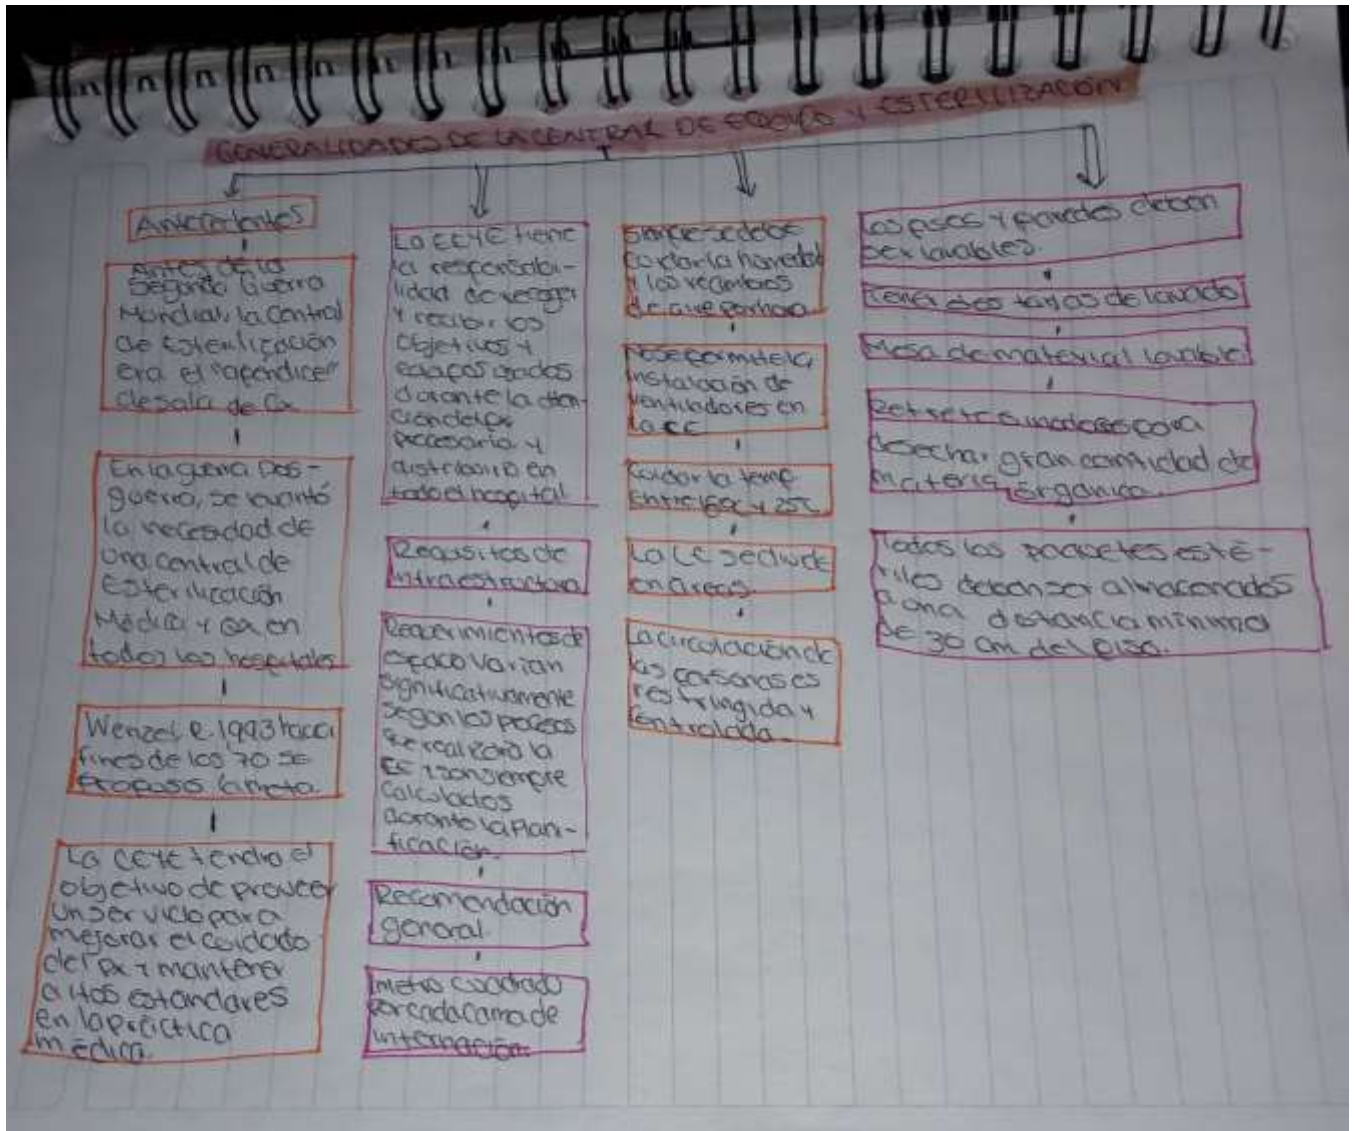 GENERALIDADES DE LA CENTRAL DE EQUIPO Y ESTERILIZACIÓN
Antecedentes
Antes de la
Segunda Guerra
Mundial, la Central
de Esterilización
era el "apendice"
de sala de Qx
En la guerra Pos-
guerra, se levantó
la necesidad de
una central de
Esterilización
Médica y Qx en
todos los hospitales
Wenzel, R 1993 hacia
fines de los 70 se
propuso la meta.
La CEYE tendra el
objetivo de proveer
un servicio para
mejorar el cuidado
del px y mantener
altos estandares
en la práctica
médica.
La CEYE tiene
la responsabi-
lidad de recoger
y recibir los
objetivos y
equipos usados
durante la aten-
ción del px
procesarlo y
distribuirlo en
todo el hospital
Requisitos de
infraestructura
Requerimientos de
espacio varian
significativamente
segun los procesos
que realizara la
CE y son siempre
calculados
durante la Plani-
ficación.
Recomendación
general.
1 metro cuadrado
por cada cama de
internación.
Siempre se debe
cuidar la humedad
y los recambios
de aire por hora.
No se permite la
instalación de
ventiladores en
la CE
Cuidar la temp
Entre 18°C y 25°C
La CE se divide
en áreas.
La circulación de
las personas es
restringida y
controlada.
Los pisos y paredes deben
ser lavables.
Tener dos tarjas de lavado
Mesa de material lavable
Retrete o inodoros para
desechar gran cantidad de
materia orgánica.
Todos los paquetes esté-
riles deben ser almacenados
a una distancia mínima
de 30 cm del piso.